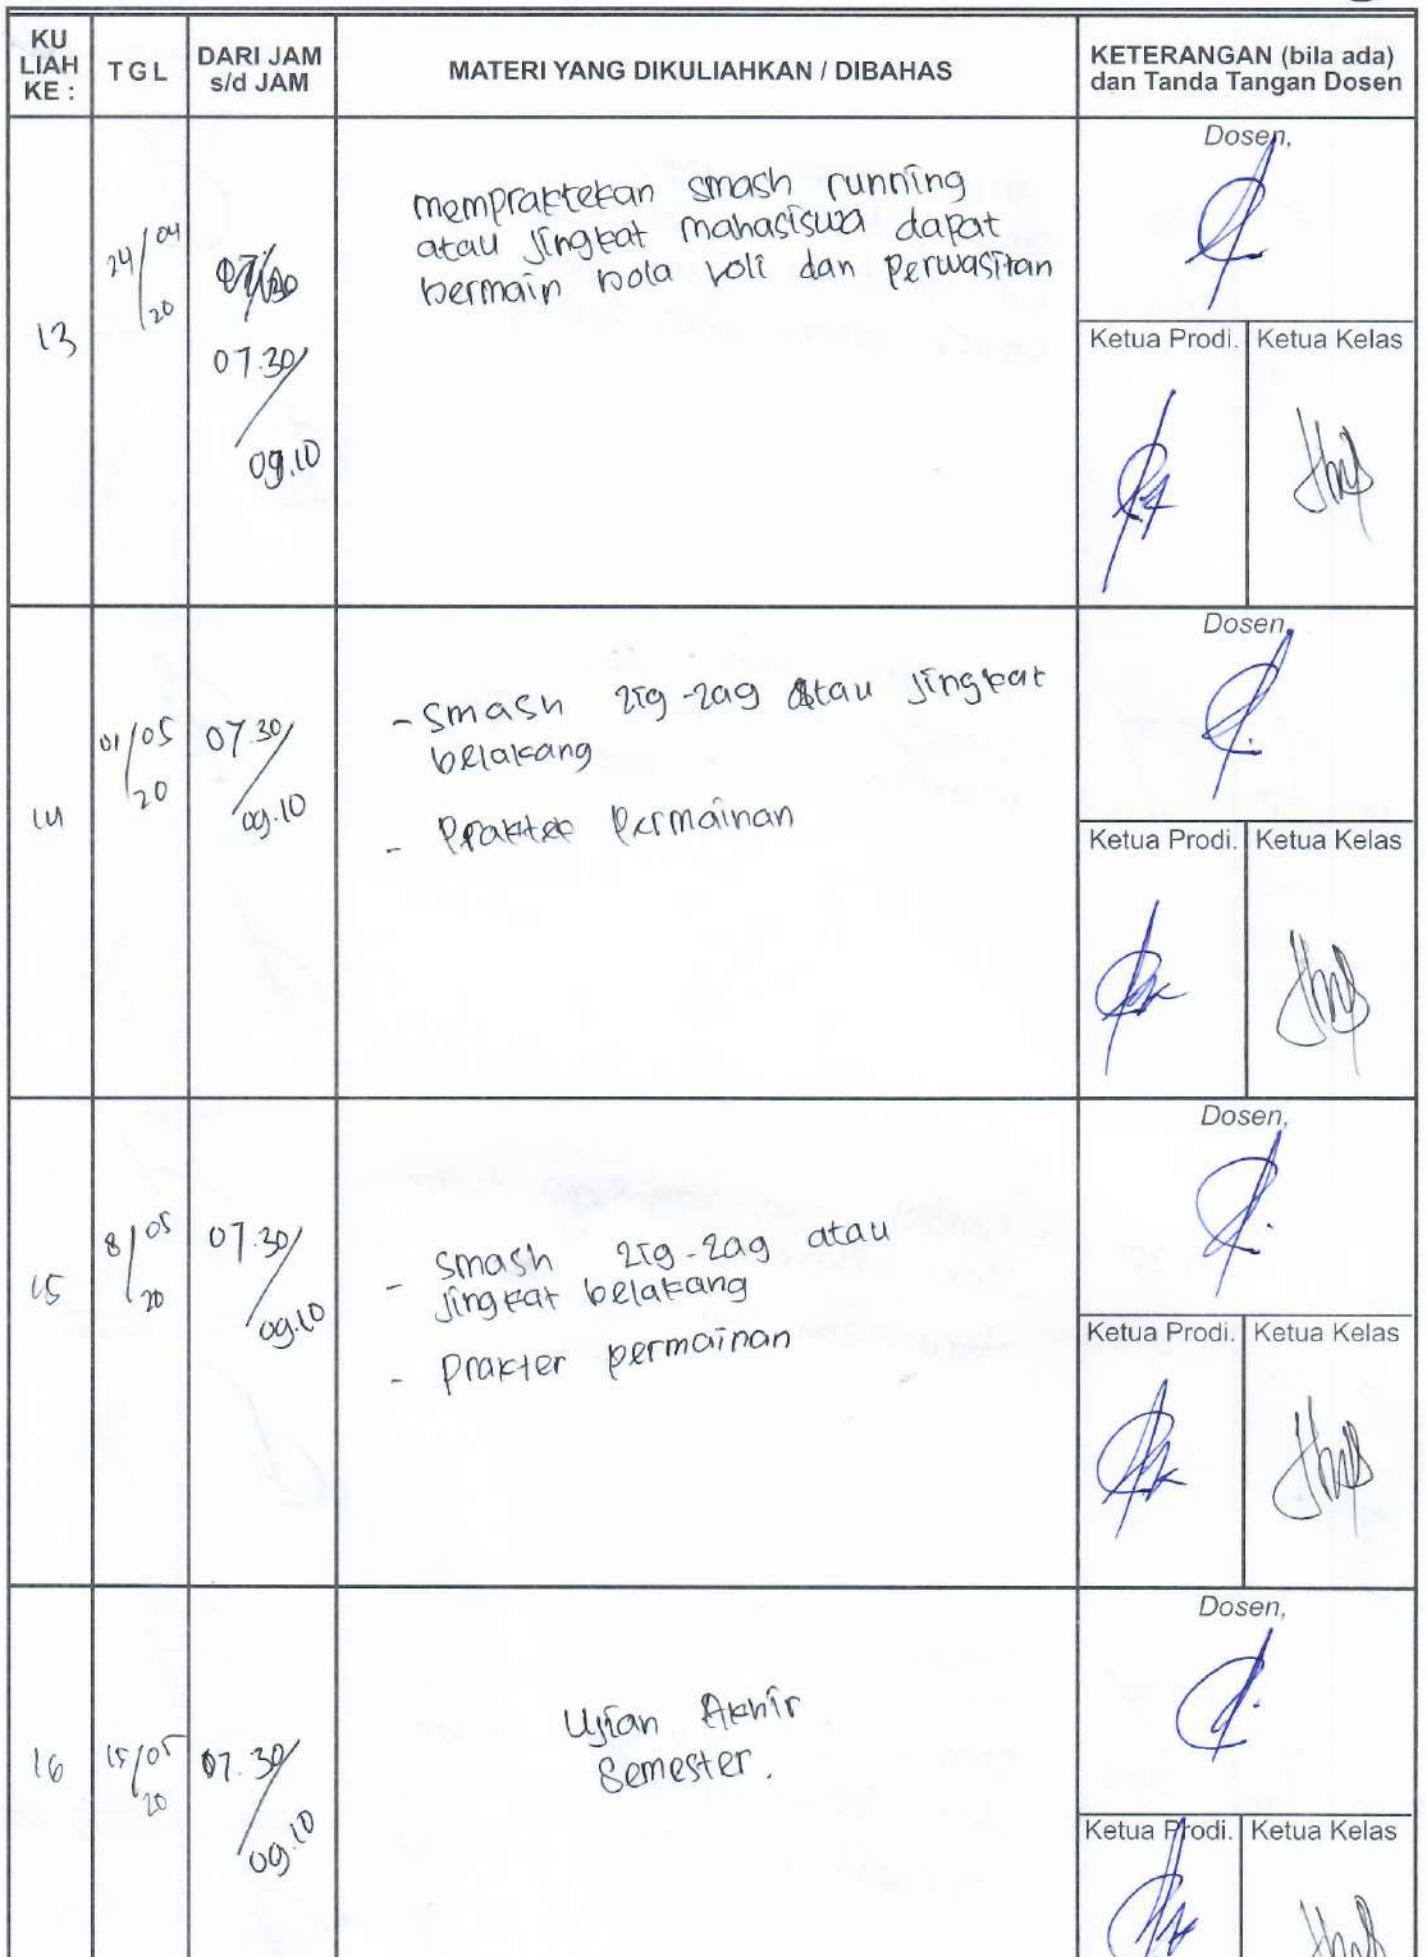 KU
LIAH
KE :
TGL
DARI JAM
s/d JAM
MATERI YANG DIKULIAHKAN / DIBAHAS
KETERANGAN (bila ada)
dan Tanda Tangan Dosen
13
24/04
20
07.30/
09.10
mempraktekan smash running
atau jingkat mahasiswa dapat
bermain bola voli dan perwasitan
Dosen,
Ketua Prodi.
Ketua Kelas
14
01/05
20
07.30/
09.10
- Smash zig-zag atau jingkat
belakang
- Praktek Permainan
Dosen,
Ketua Prodi.
Ketua Kelas
15
8/05
20
07.30/
09.10
- Smash zig-zag atau
jingkat belakang
- Prakter permainan
Dosen,
Ketua Prodi.
Ketua Kelas
16
15/05
20
07.30/
09.10
Ujian Akhir
Semester.
Dosen,
Ketua Prodi.
Ketua Kelas